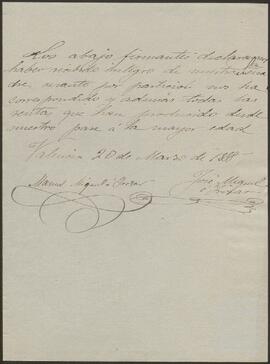 Los abajo firmantes declaramos
haber recibido integro de nuestra
dre, cuanto por particion nos ha
correspondido y ademas todas las
rentas que han producido desde
nuestro pase á la mayor edad
Valencia 20 de Marzo de 188
Manuel Miguel José Miguel